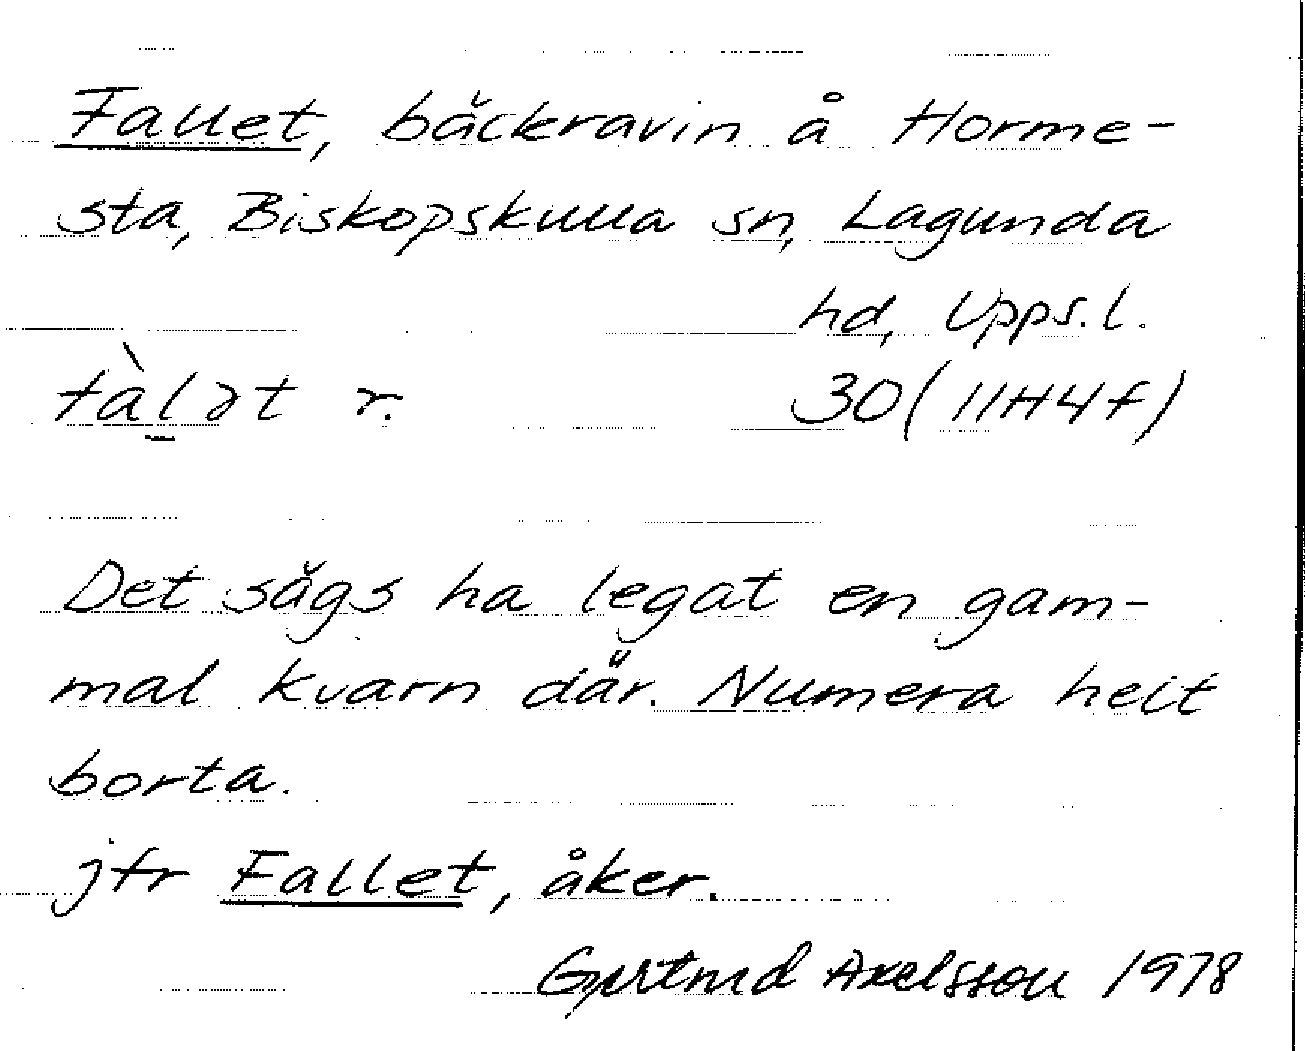 Fallet, bäckravin å Horme-
sta, Biskopskulla sn, Lagunda
hd, Upps.l.
fàḷət r. 30(11H4f)
Det sägs ha legat en gam-
mal kvarn där. Numera helt
borta.
jfr Fallet, åker.
Gertrud Axelsson 1978